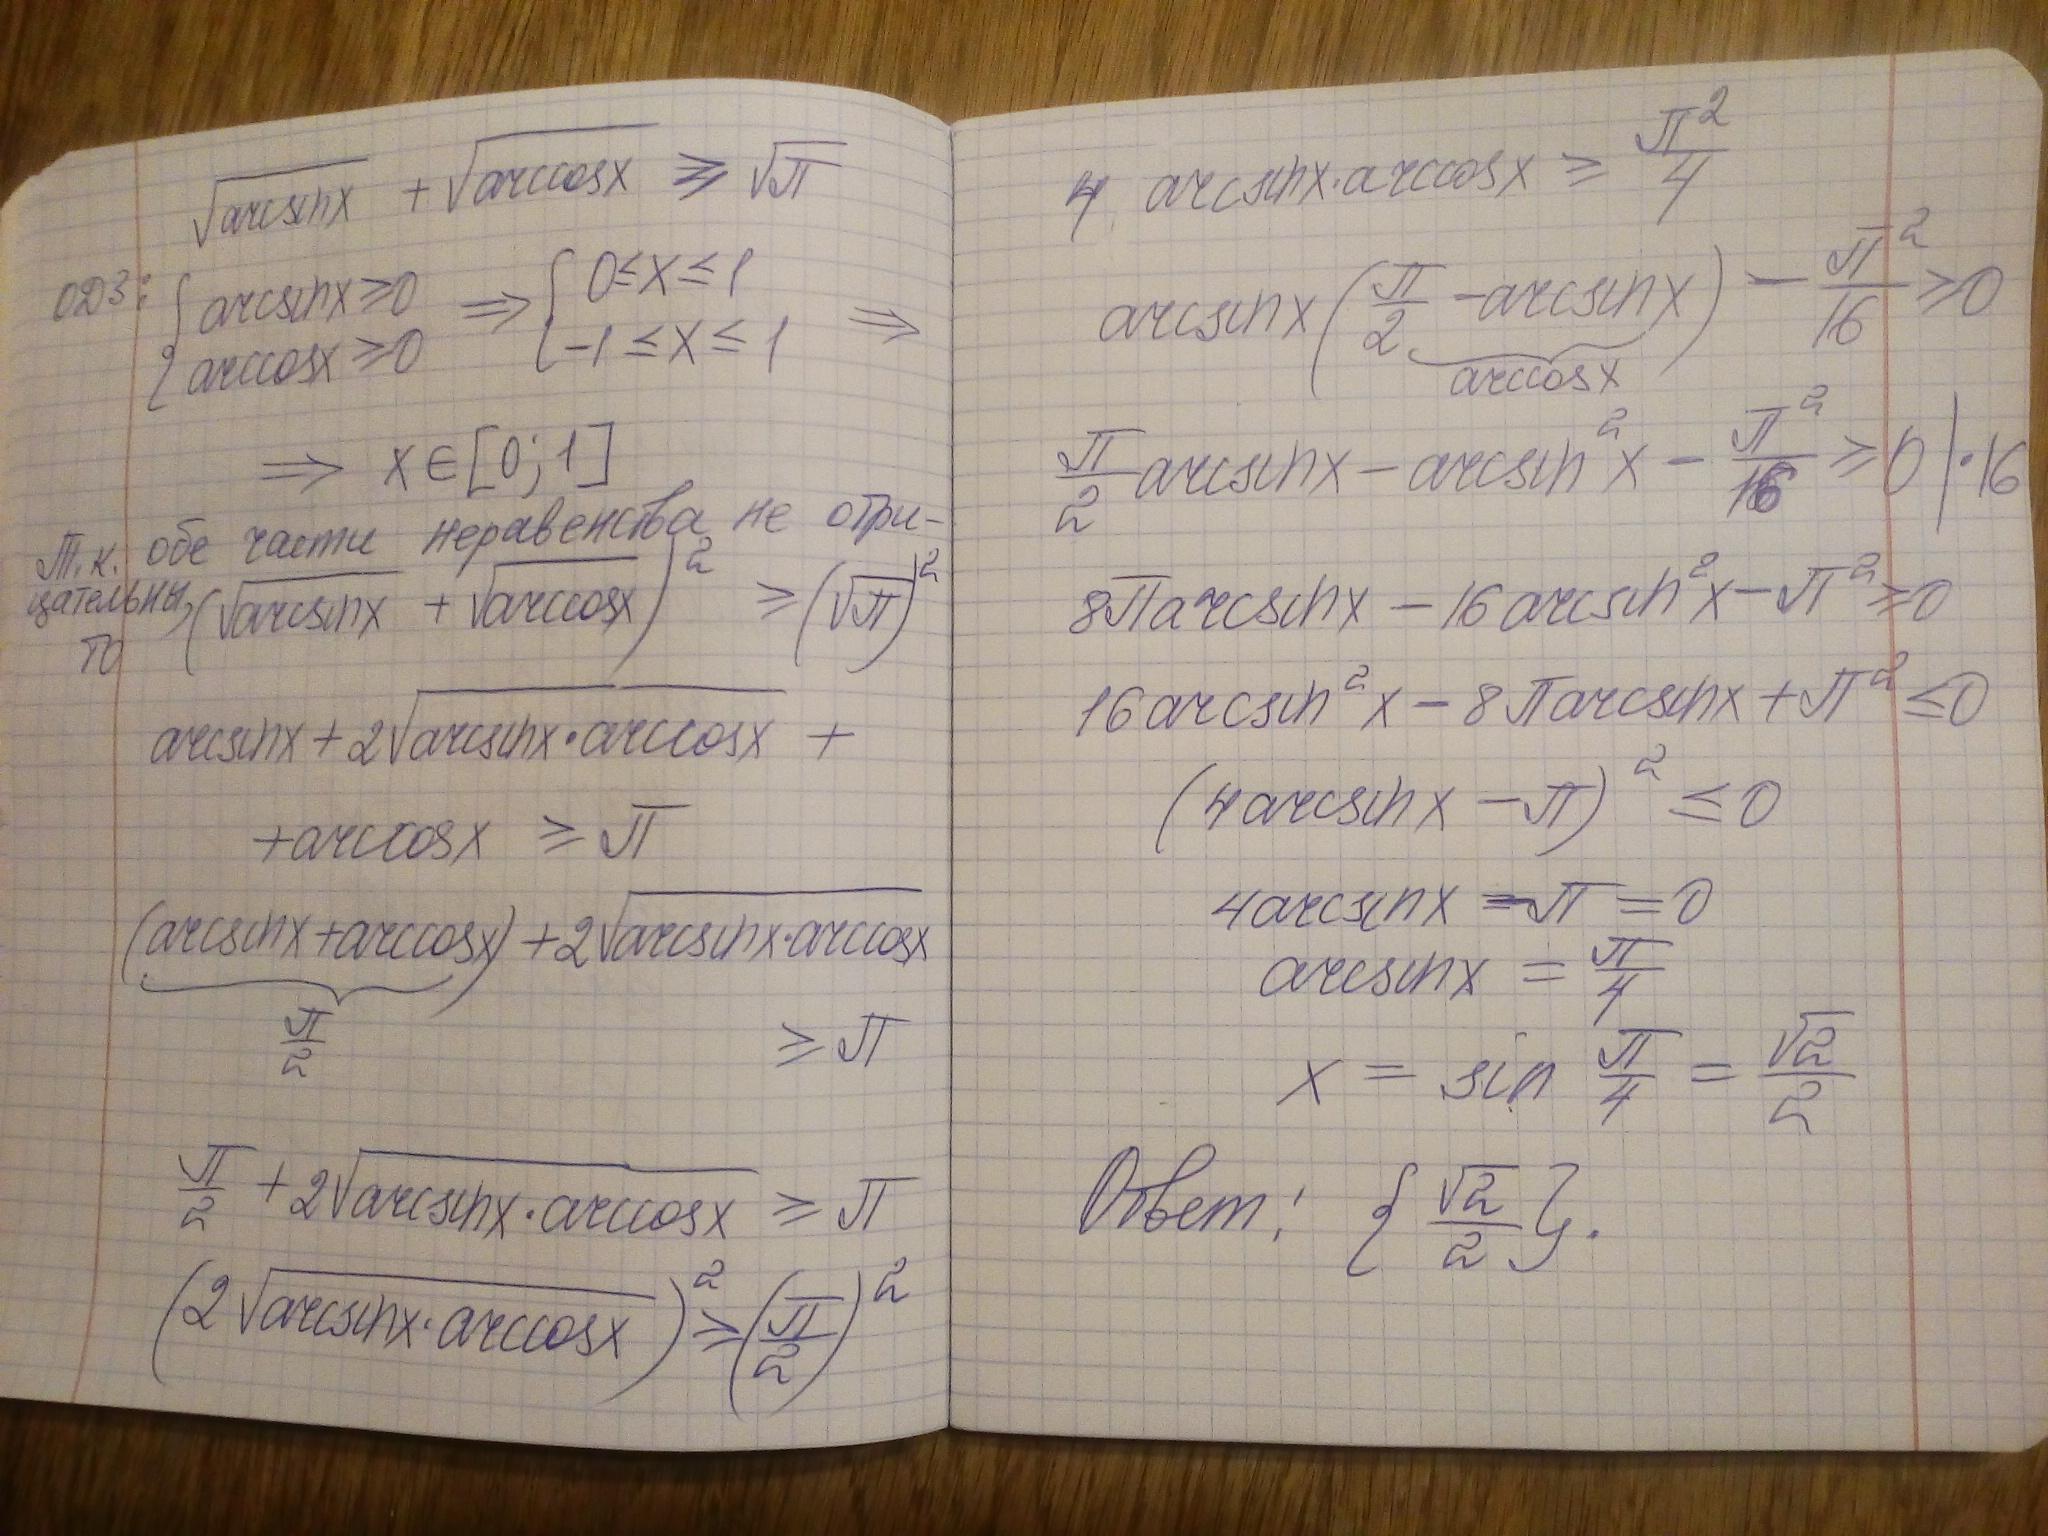 √arcsinx + √arccosx ⩾ √π
ОДЗ: { arcsinx ⩾ 0 ⇒ { 0 ≤ x ≤ 1
arccosx ⩾ 0 -1 ≤ x ≤ 1 ⇒
⇒ x ∈ [0; 1]
Т.к. обе части неравенства не отри-
цательны, то (√arcsinx + √arccosx)² ⩾ (√π)²
arcsinx + 2√(arcsinx · arccosx) +
+ arccosx ⩾ π
(arcsinx + arccosx) + 2√(arcsinx · arccosx)
π/2 ⩾ π
π/2 + 2√(arcsinx · arccosx) ⩾ π
(2√(arcsinx · arccosx))² ⩾ (π/2)²
4 arcsinx · arccosx ⩾ π²/4
arcsinx (π/2 - arcsinx) - π²/16 ⩾ 0
arccosx
π/2 arcsinx - arcsin²x - π²/16 ⩾ 0 | · 16
8π arcsinx - 16 arcsin²x - π² ⩾ 0
16 arcsin²x - 8π arcsinx + π² ≤ 0
(4 arcsinx - π)² ≤ 0
4 arcsinx - π = 0
arcsinx = π/4
x = sin π/4 = √2/2
Ответ: {√2/2}.